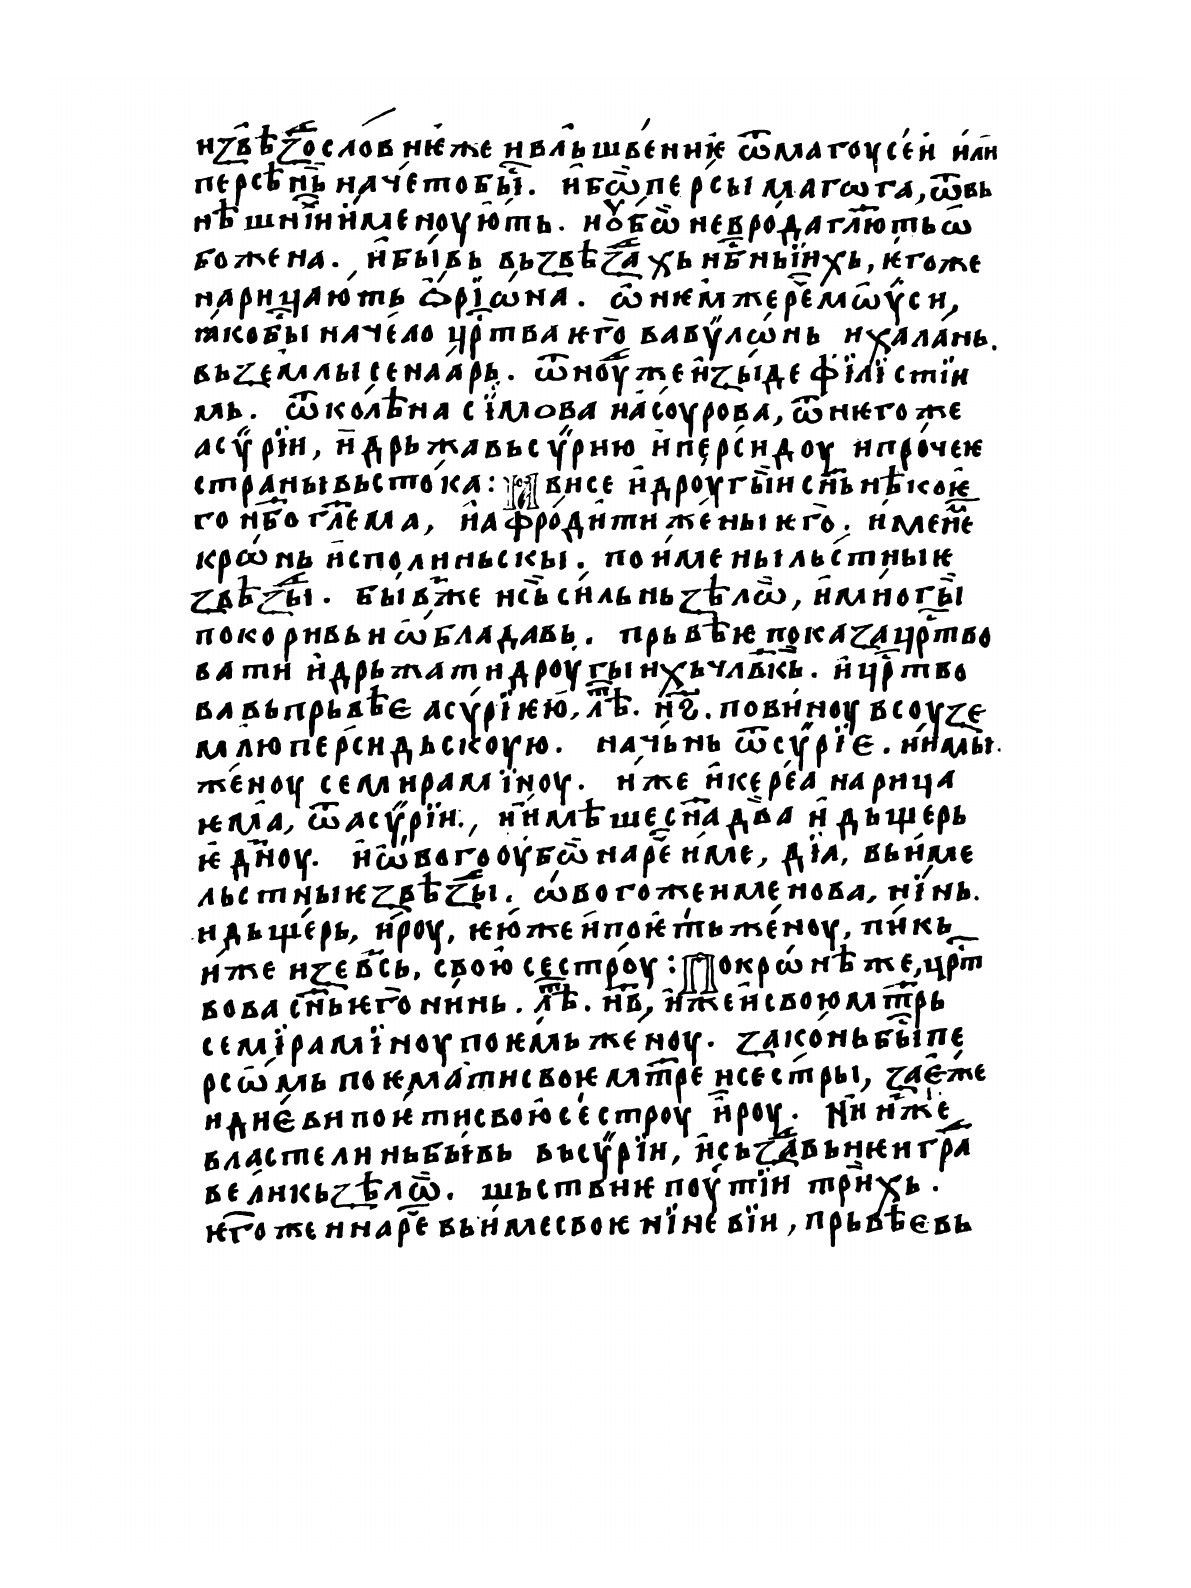 и҆ꙁвѣꙁⷣословїѥже и҆влъшвенїѥ ѿмагоусеи и҆ли
персѣнь начетобыⷭ. и҆бѡперсы магѡга, ѿвь
нѣшнїи и҆меноуют. но̑убѡ невродаглют ѡ
божена. и҆бывь вьꙁвѣꙁⷣахь нбⷭныихь, ѥгоже
нарицають ѻ҆рїѡна. ѡ҆немжереⷱ мѡѵси,
ꙗкобы начело црⷭтва ѥго вавѷлѡнь и халань.
вьꙁемлы сенаарь. ѿноуⷣже и҆ꙁыде фїлїстїи
мь. ѿколѣна сїмова насоурова, ѿнѥгоже
асѷрїи, и҆дрьжавьсѷрию и҆персидоу и҆прочеѥ
страны вьстока: Ꙗвисе и҆дроугыи снь нѣкоѥ
го нбⷪ҇глема, и҆афродити жены ѥго. и҆менеⷨ
крѡнь и҆сполиньскы. по и҆мены льстныѥ
ꙁвѣꙁⷣы. бывже и҆сь сильнь ꙁѣлѡ, и҆многыⷯ
покоривь и ѡбладавь. прьвѣѥ показа црⷭтво
вати и҆дрьжати дроугыихь члвкь. и҆црⷭтво
вавь прьвѣе асѷрїѥю, лѣⷮ. нг. повиноу всоу ꙁе
млю персидьскоую. начьнь ѿсѷрїе. и҆имы
женоу семирамїноу. иже и҆кереа нарица
ѥма, ѿасѷрїи., и҆имѣше сна два и҆дьщерь
ѥдноу. и҆ѡвогооубѡ нареⷱ име, дїа, вь име
льстныѥ ꙁвѣꙁⷣы. ѡвогоже именова, нїнь.
и дьщерь, ироу, ѥюже и҆поѥть женоу, пикь
иже и ꙁевсь, свою сестроу: По крѡнѣ же, црⷭт
вова снь ѥго нинь. лѣⷮ. нв, иже и свою мтрь
семїрамїноу поѥмь женоу. ꙁаконь бы пе
рсѡмь поѥмати своѥ мтре и сестры, ꙁаеже
и диеви поѥти свою сестроу ироу. Нии иже
властелинь бывь вьсѷрїи, и҆сьꙁⷣавь нѥи граⷣ
великь ꙁѣлѡ. шьствиѥ поутїи трихь.
ѥгоже и нареⷱ вь име своѥ нїневїи, прьвѣе вь